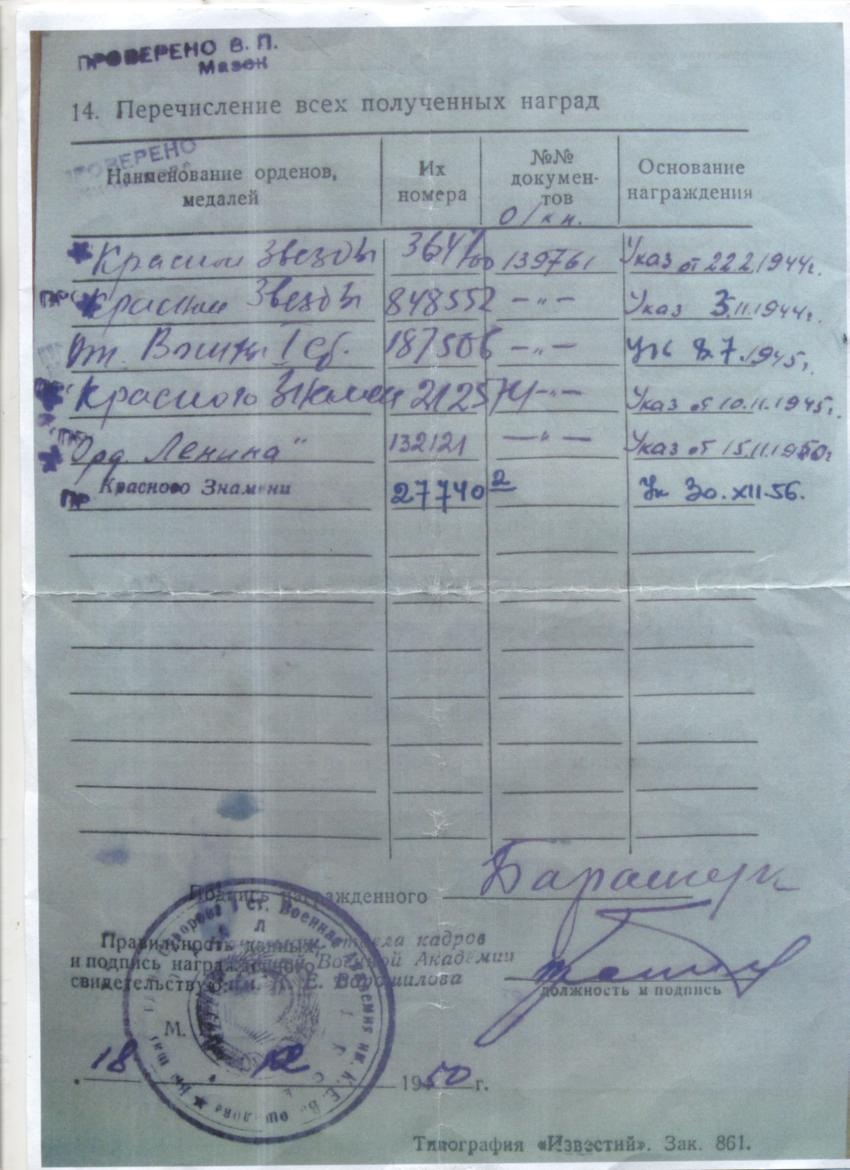 ПРОВЕРЕНО В. П.
Мазок
14. Перечисление всех полученных наград
ПРОВЕРЕНО
Наименование орденов, медалей
Их номера
№№ документов
О/кн.
Основание награждения
Красной Звезды 3641 139761 Указ от 22.2.1944г.
Красной Звезды 848552 —"— Указ 3.11.1944г.
От. Войны I ст. 187506 —"— Ук 8.7.1945г.
Красного Знамени 212574 —"— Указ от 10.11.1945г.
"Орд. Ленина" 132121 —"— Указ от 15.11.1950г
ПР Красного Знамени 277402 Ук 30.XII.56.
Подпись награжденного
Правильность данных отдела кадров
и подпись награжденного Военной Академии
свидетельствую: им. К. Е. Ворошилова
должность и подпись
М.
18 12 1950 г.
Типография «Известий». Зак. 861.